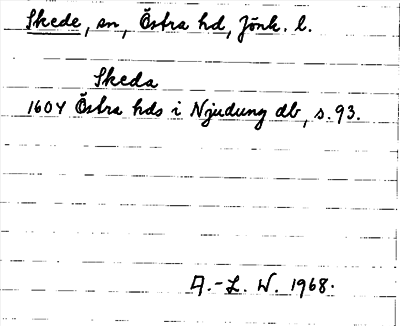 Skede, sn, Östra hd, Jönk. l.
Skeda
1604 Östra hds i Njudung db, s. 93.
A.-L. W. 1968.